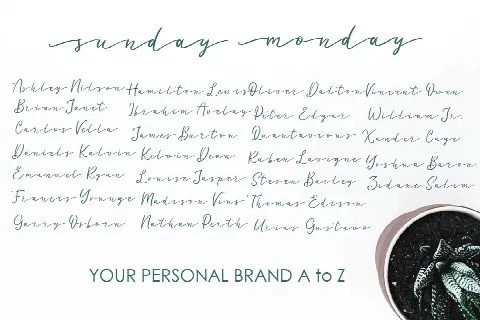 sunday monday
Ashley Nilson Hamilton Lewis Oliver Dalton Vincent Owen
Brian Janet Ibrahim Avelay Peter Edgar William Jr.
Carlos Vella James Burton Quantavious Xander Cage
Daniels Kalvin Kelvin Deen Ruben Lavigne Yoshua Baron
Emanuel Ryan Louise Jasper Steven Burley Zidane Salim
Francis Younge Madison Vins Thomas Edison
Garry Osborn Nathan Perth Urias Gustavo
YOUR PERSONAL BRAND A to Z